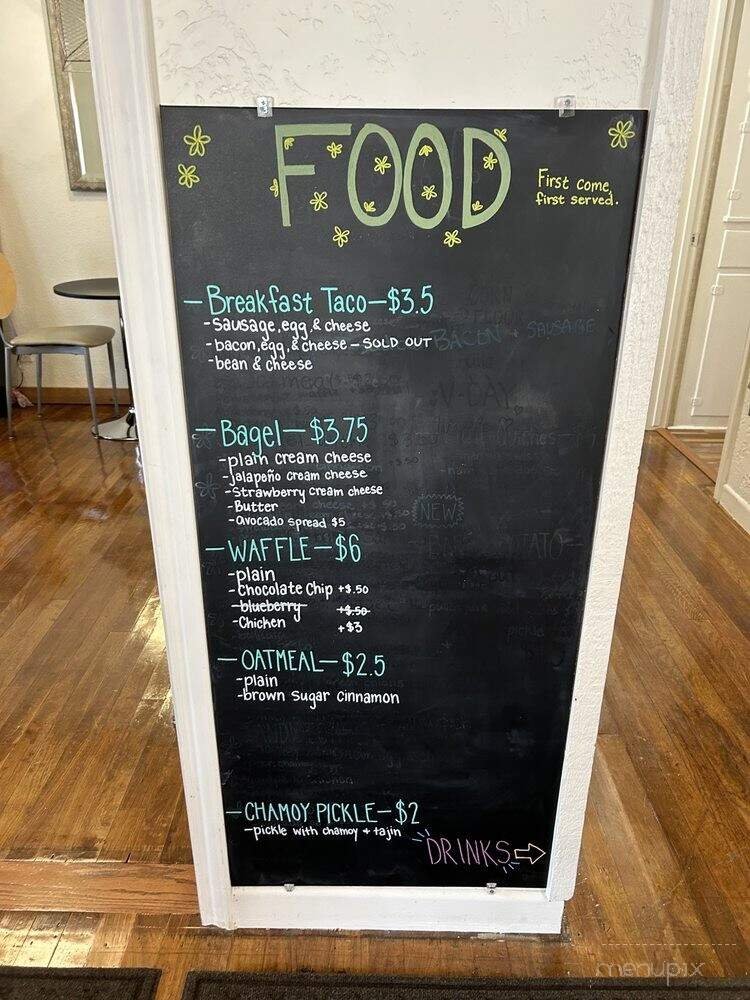 FOOD
First come,
first served.
—Breakfast Taco—$3.5
-sausage, egg, & cheese
-bacon, egg, & cheese — SOLD OUT
BACON + SAUSAGE
-bean & cheese
V-DAY
—Bagel—$3.75
-plain cream cheese
-jalapeño cream cheese
-Strawberry cream cheese
-Butter
-avocado spread $5
NEW
—WAFFLE—$6
-plain
-chocolate chip +$.50
-blueberry +$.50
-Chicken +$3
—OATMEAL—$2.5
-plain
-brown sugar cinnamon
—CHAMOY PICKLE—$2
-pickle with chamoy + tajin
DRINKS
menupix